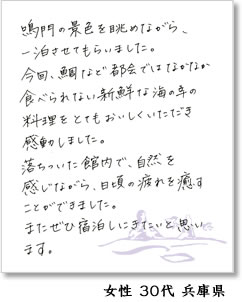 鳴門の景色を眺めながら、
一泊させてもらいました。
今回、鯛など都会ではなかなか
食べられない新鮮な海の幸の
料理をとてもおいしくいただき
感動しました。
落ちついた館内で、自然を
感じながら、日頃の疲れを癒す
ことができました。
またぜひ宿泊しにきたいと思い
ます。
女性 30代 兵庫県